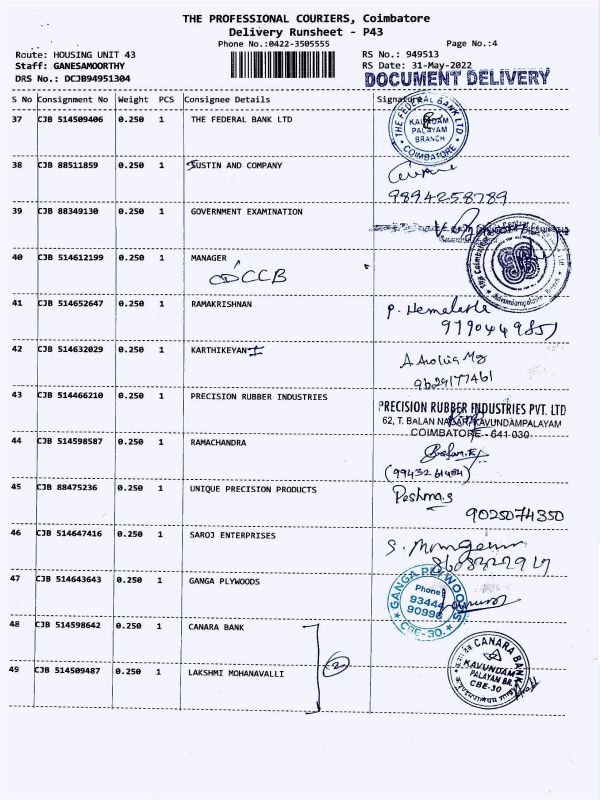 THE PROFESSIONAL COURIERS, Coimbatore
Delivery Runsheet - P43
Phone No.:0422-3505555
Page No.:4
Route: HOUSING UNIT 43
RS No.: 949513
Staff: GANESAMOORTHY
RS Date: 31-May-2022
DRS No.: DCJB94951304
DOCUMENT DELIVERY
S No Consignment No Weight PCS Consignee Details Signature
37 CJB 514509406 0.250 1 THE FEDERAL BANK LTD
THE FEDERAL BANK LTD. KAUNDAM PALAYAM BRANCH COIMBATORE
38 CJB 88511859 0.250 1 JUSTIN AND COMPANY
9894258789
39 CJB 88349130 0.250 1 GOVERNMENT EXAMINATION
40 CJB 514612199 0.250 1 MANAGER
CDCCB
41 CJB 514652647 0.250 1 RAMAKRISHNAN
P. Hemalatha
42 CJB 514632029 0.250 1 KARTHIKEYAN I
9629177461
43 CJB 514466210 0.250 1 PRECISION RUBBER INDUSTRIES
PRECISION RUBBER INDUSTRIES PVT. LTD
62, T. BALAN NAGAR, KAVUNDAMPALAYAM
COIMBATORE - 641 030
44 CJB 514598587 0.250 1 RAMACHANDRA
(9943261484)
45 CJB 88475236 0.250 1 UNIQUE PRECISION PRODUCTS
Reshma.s
9025074350
46 CJB 514647416 0.250 1 SAROJ ENTERPRISES
47 CJB 514643643 0.250 1 GANGA PLYWOODS
GANGA PLYWOODS Phone 93444 90996 CBE-30.
48 CJB 514598642 0.250 1 CANARA BANK
2
CANARA BANK KAVUNDAM PALAYAM BR. CBE-30
49 CJB 514509487 0.250 1 LAKSHMI MOHANAVALLI